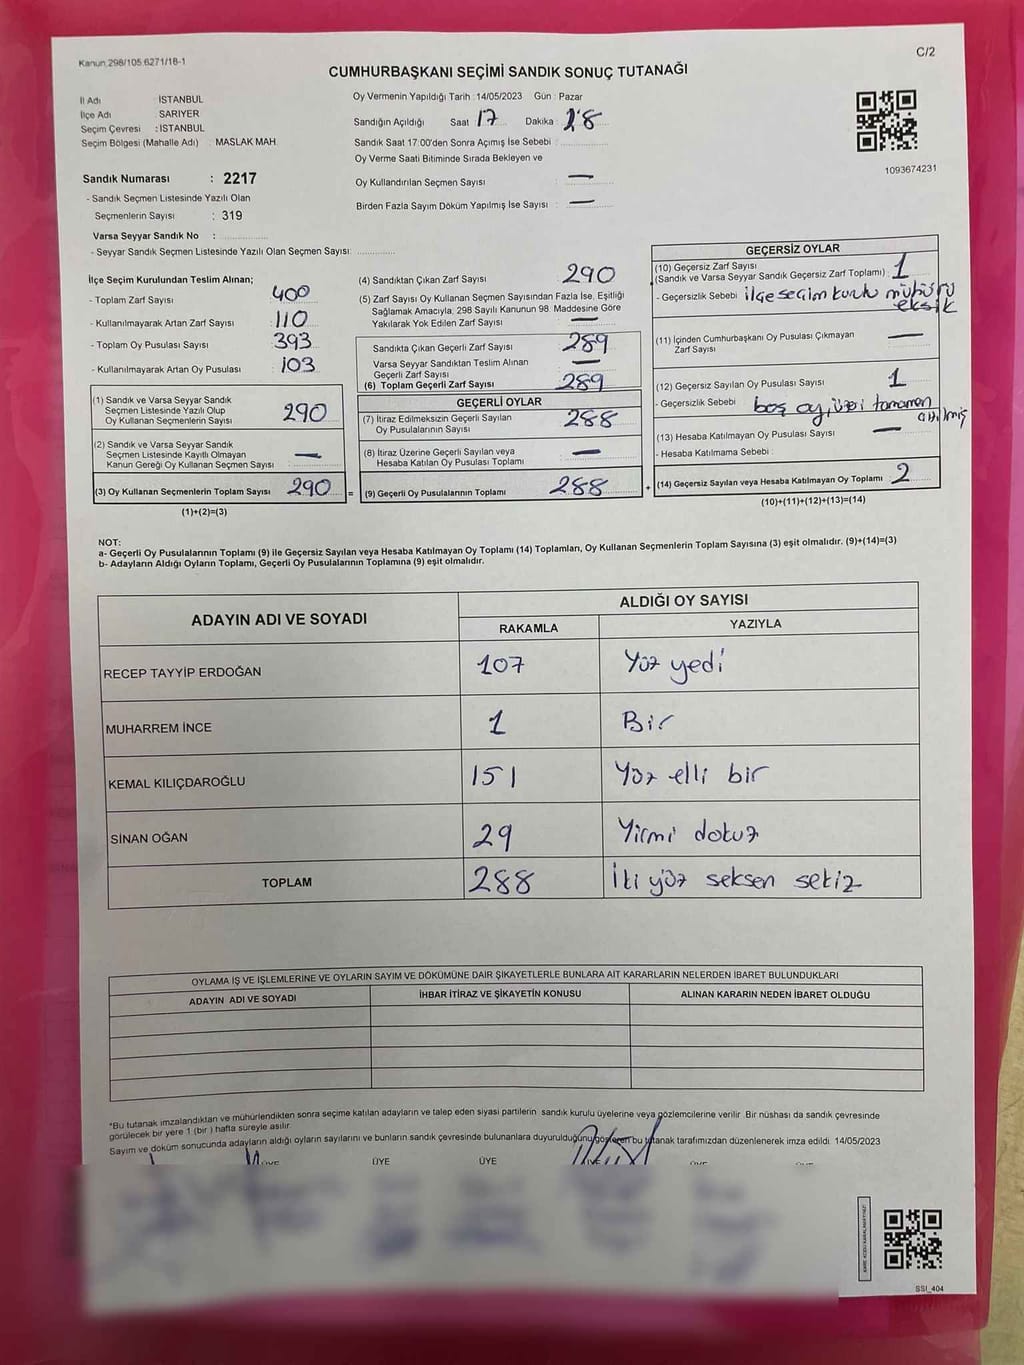 Kanun 298/105 6271/18-1
C/2
CUMHURBAŞKANI SEÇİMİ SANDIK SONUÇ TUTANAĞI
İl Adı : İSTANBUL
İlçe Adı : SARIYER
Seçim Çevresi : İSTANBUL
Seçim Bölgesi (Mahalle Adı) : MASLAK MAH.
Oy Vermenin Yapıldığı Tarih : 14/05/2023 Gün : Pazar
Sandığın Açıldığı Saat : 17 Dakika : 28
Sandık Saat 17:00'den Sonra Açımış İse Sebebi :
Oy Verme Saati Bitiminde Sırada Bekleyen ve
Oy Kullandırılan Seçmen Sayısı : —
Birden Fazla Sayım Döküm Yapılmış İse Sayısı : —
1093674231
Sandık Numarası : 2217
- Sandık Seçmen Listesinde Yazılı Olan
Seçmenlerin Sayısı : 319
Varsa Seyyar Sandık No :
- Seyyar Sandık Seçmen Listesinde Yazılı Olan Seçmen Sayısı:
İlçe Seçim Kurulundan Teslim Alınan;
- Toplam Zarf Sayısı : 400
- Kullanılmayarak Artan Zarf Sayısı : 110
- Toplam Oy Pusulası Sayısı : 393
- Kullanılmayarak Artan Oy Pusulası : 103
(1) Sandık ve Varsa Seyyar Sandık
Seçmen Listesinde Yazılı Olup
Oy Kullanan Seçmenlerin Sayısı : 290
(2) Sandık ve Varsa Seyyar Sandık
Seçmen Listesinde Kayıtlı Olmayan
Kanun Gereği Oy Kullanan Seçmen Sayısı : —
(3) Oy Kullanan Seçmenlerin Toplam Sayısı : 290
(1)+(2)=(3)
(4) Sandıktan Çıkan Zarf Sayısı : 290
(5) Zarf Sayısı Oy Kullanan Seçmen Sayısından Fazla İse, Eşitliği
Sağlamak Amacıyla, 298 Sayılı Kanunun 98. Maddesine Göre
Yakılarak Yok Edilen Zarf Sayısı : —
Sandıkta Çıkan Geçerli Zarf Sayısı : 289
Varsa Seyyar Sandıktan Teslim Alınan
Geçerli Zarf Sayısı : —
(6) Toplam Geçerli Zarf Sayısı : 289
GEÇERLİ OYLAR
(7) İtiraz Edilmeksizin Geçerli Sayılan
Oy Pusulalarının Sayısı : 288
(8) İtiraz Üzerine Geçerli Sayılan veya
Hesaba Katılan Oy Pusulası Toplamı : —
= (9) Geçerli Oy Pusulalarının Toplamı : 288
GEÇERSİZ OYLAR
(10) Geçersiz Zarf Sayısı
(Sandık ve Varsa Seyyar Sandık Geçersiz Zarf Toplamı) : 1
- Geçersizlik Sebebi : ilçe seçim kurulu mühürü
eksik
(11) İçinden Cumhurbaşkanı Oy Pusulası Çıkmayan
Zarf Sayısı : —
(12) Geçersiz Sayılan Oy Pusulası Sayısı : 1
- Geçersizlik Sebebi : boş oy, üzeri tamamen
(13) Hesaba Katılmayan Oy Pusulası Sayısı : —
- Hesaba Katılmama Sebebi :
+ (14) Geçersiz Sayılan veya Hesaba Katılmayan Oy Toplamı : 2
(10)+(11)+(12)+(13)=(14)
NOT:
a- Geçerli Oy Pusulalarının Toplamı (9) ile Geçersiz Sayılan veya Hesaba Katılmayan Oy Toplamı (14) Toplamları, Oy Kullanan Seçmenlerin Toplam Sayısına (3) eşit olmalıdır. (9)+(14)=(3)
b- Adayların Aldığı Oyların Toplamı, Geçerli Oy Pusulalarının Toplamına (9) eşit olmalıdır.
ADAYIN ADI VE SOYADI
ALDIĞI OY SAYISI
RAKAMLA YAZIYLA
RECEP TAYYİP ERDOĞAN 107 Yüz yedi
MUHARREM İNCE 1 Bir
KEMAL KILIÇDAROĞLU 151 Yüz elli bir
SİNAN OĞAN 29 Yirmi dokuz
TOPLAM 288 İki yüz seksen sekiz
OYLAMA İŞ VE İŞLEMLERİNE VE OYLARIN SAYIM VE DÖKÜMÜNE DAİR ŞİKAYETLERLE BUNLARA AİT KARARLARIN NELERDEN İBARET BULUNDUKLARI
ADAYIN ADI VE SOYADI İHBAR İTİRAZ VE ŞİKAYETİN KONUSU ALINAN KARARIN NEDEN İBARET OLDUĞU
*Bu tutanak imzalandıktan ve mühürlendikten sonra seçime katılan adayların ve talep eden siyasi partilerin sandık kurulu üyelerine veya gözlemcilerine verilir. Bir nüshası da sandık çevresinde
görülecek bir yere 1 (bir) hafta süreyle asılır.
Sayım ve döküm sonucunda adayların aldığı oyların sayılarını ve bunların sandık çevresinde bulunanlara duyurulduğunu gösteren bu tutanak tarafımızdan düzenlenerek imza edildi. 14/05/2023
ÜYE ÜYE ÜYE
SSI_404